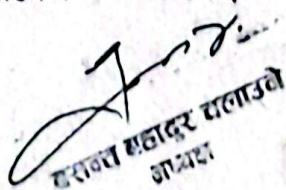 बसन्त बहादुर चलाउने
अध्यक्ष